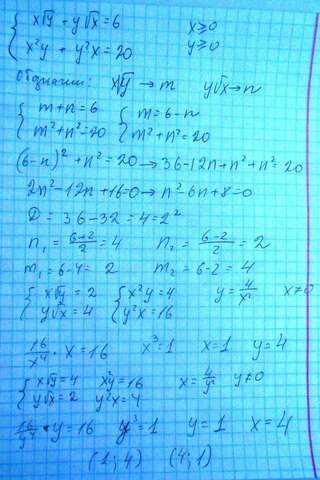 { x√y + y√x = 6      x ≥ 0
{ x²y + y²x = 20      y ≥ 0
Обозначим: x√y → m   y√x → n
{ m+n=6   { m=6-n
{ m²+n²=20   { m²+n²=20
(6-n)² + n² = 20 → 36-12n+n²+n²=20
2n²-12n+16=0 → n²-6n+8=0
D = 36-32=4=2²
n₁ = (6+2)/2 = 4   n₂ = (6-2)/2 = 2
m₁=6-4= 2   m₂=6-2=4
{ x√y = 2   { x²y=4   y=4/x²   x≠0
{ y√x = 4   { y²x=16
16/x⁴ · x = 16   x³=1   x=1   y=4
{ x√y=4   x²y=16   x=4/y²   y≠0
{ y√x=2   y²x=4
16/y⁴ · y=16   y³=1   y=1   x=4
(1; 4)   (4; 1)